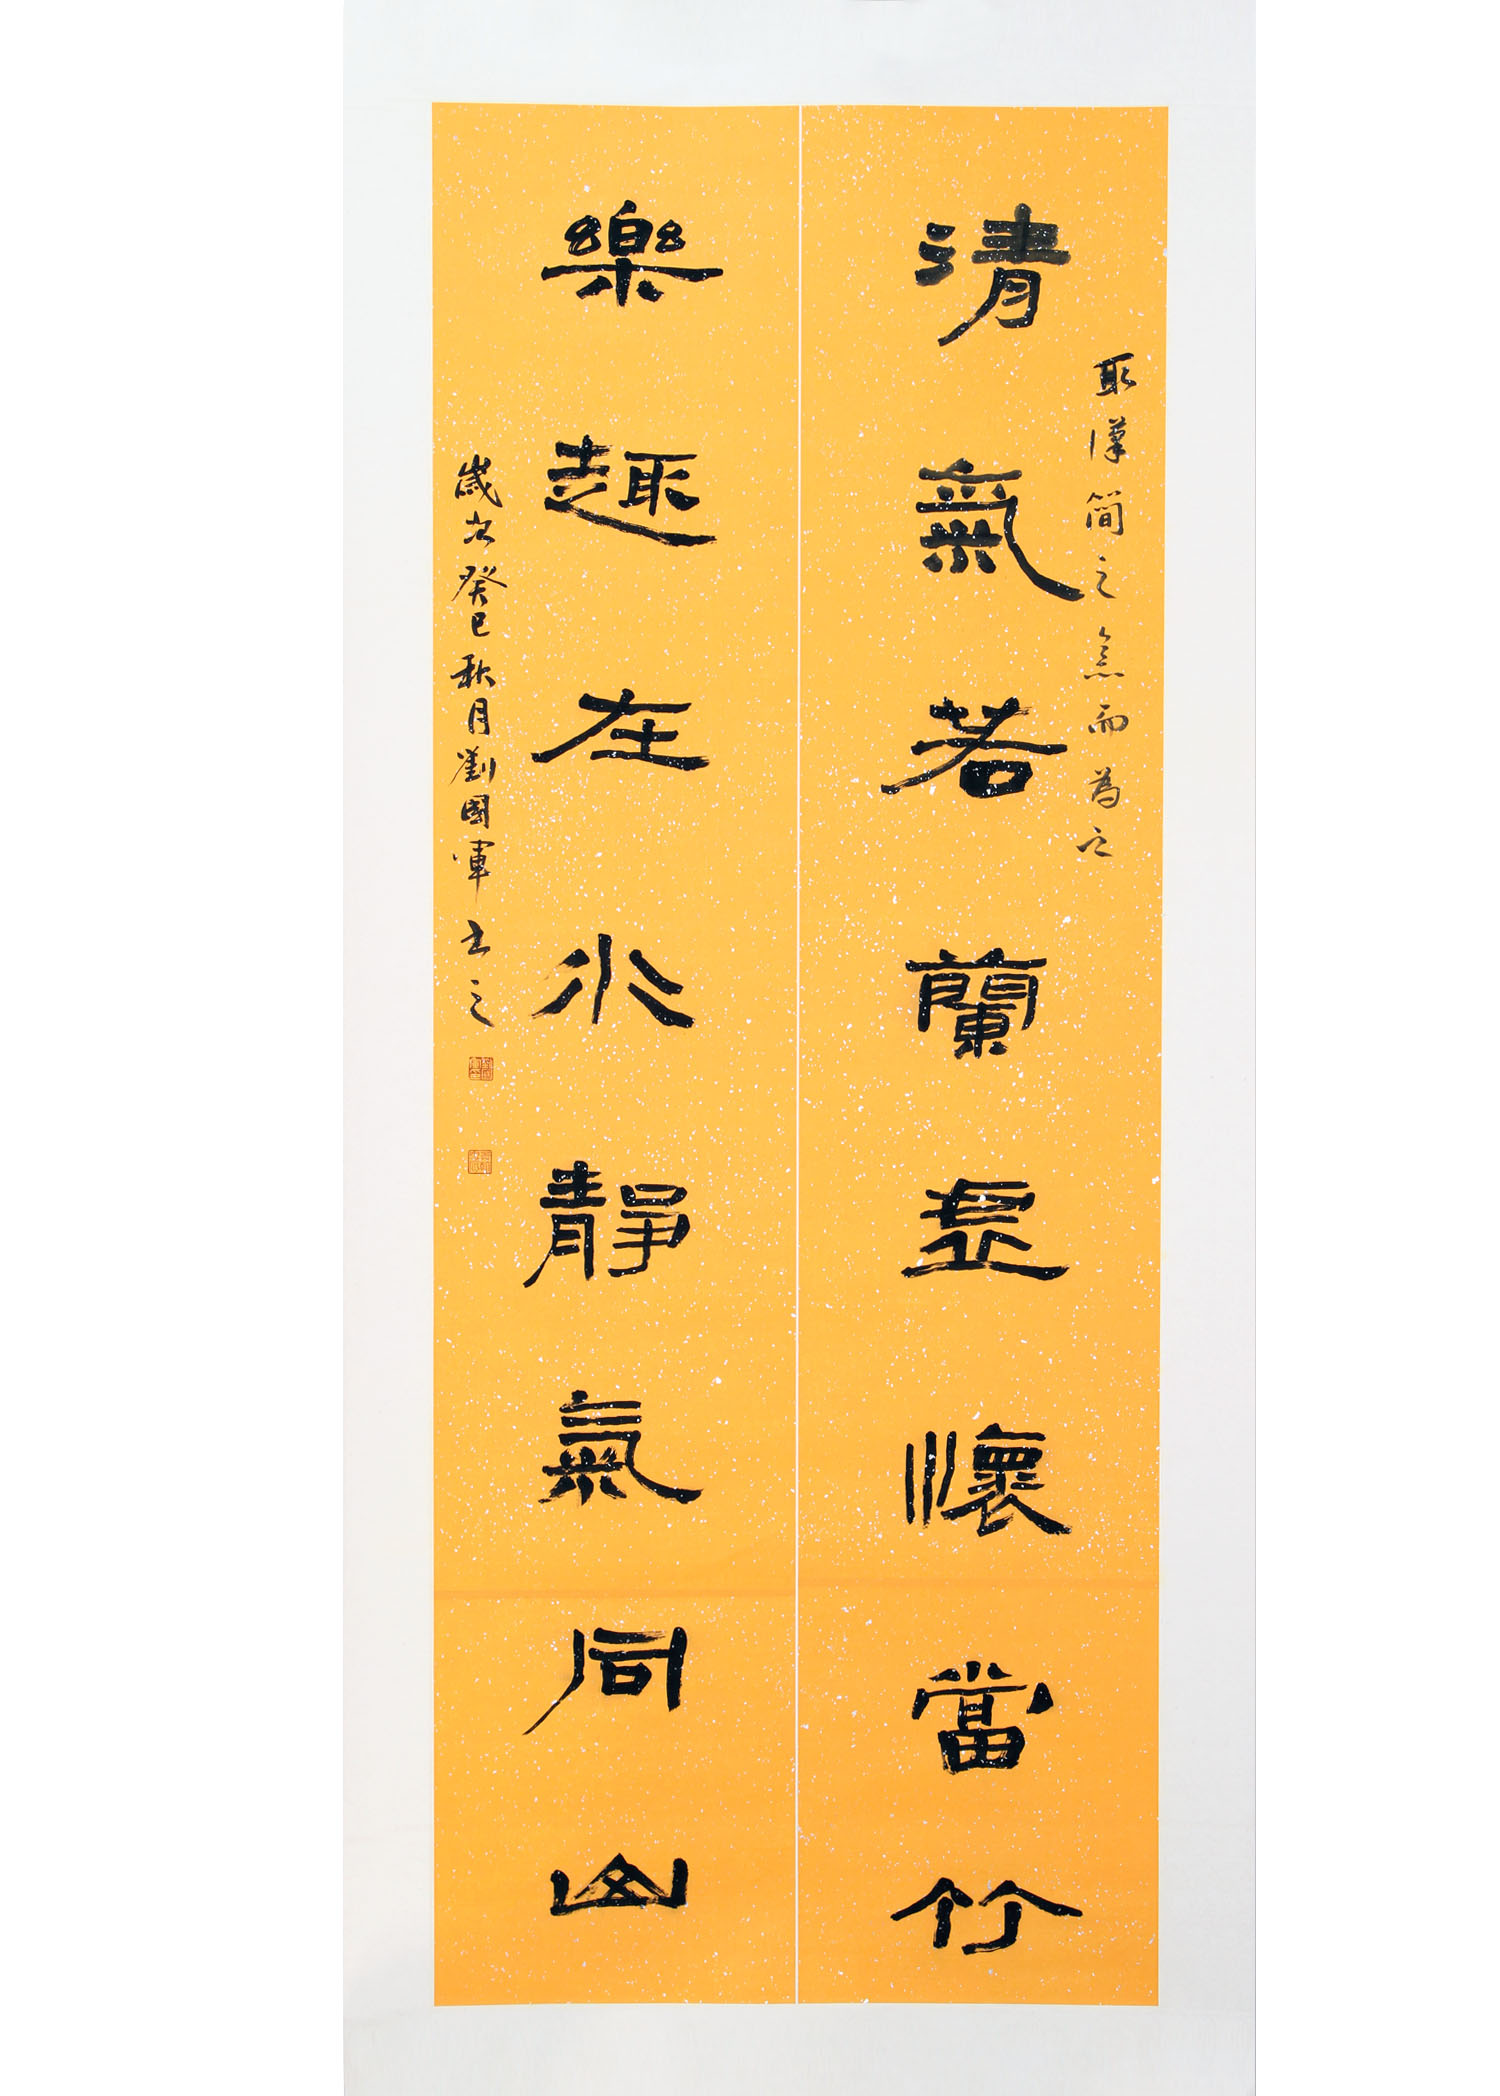 取漢簡之意而為之
清氣若蘭虛懷當竹
樂趣在水靜氣同山
歲次癸巳秋月劉國軍書之